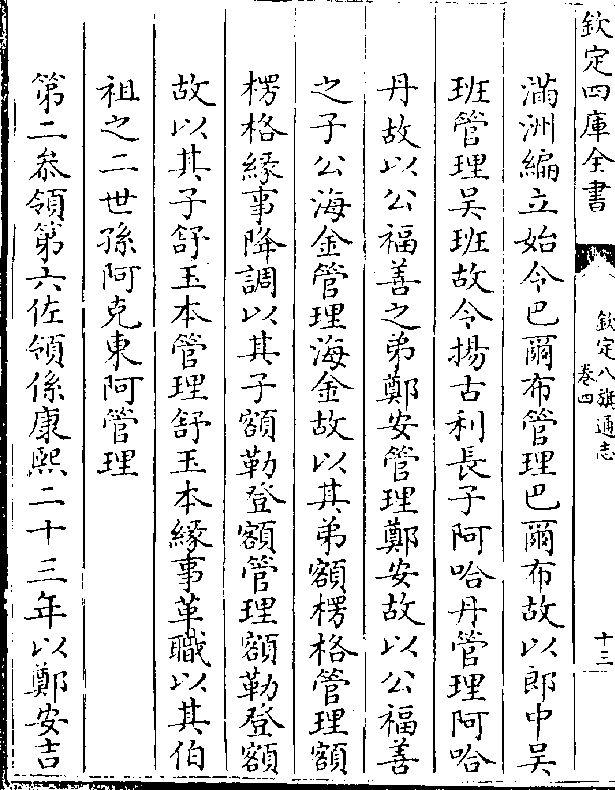 欽定四庫全書
欽定八旗通志
卷四
十三
滿洲編立始令巴爾布管理巴爾布故以郎中吴
班管理吴班故令揚古利長子阿哈丹管理阿哈
丹故以公福善之弟鄭安管理鄭安故以公福善
之子公海金管理海金故以其弟額楞格管理額
楞格緣事降調以其子額勒登額管理額勒登額
故以其子舒玉本管理舒玉本緣事革職以其伯
祖之二世孫阿克東阿管理
第二叅領第六佐領係康熙二十三年以鄭安吉